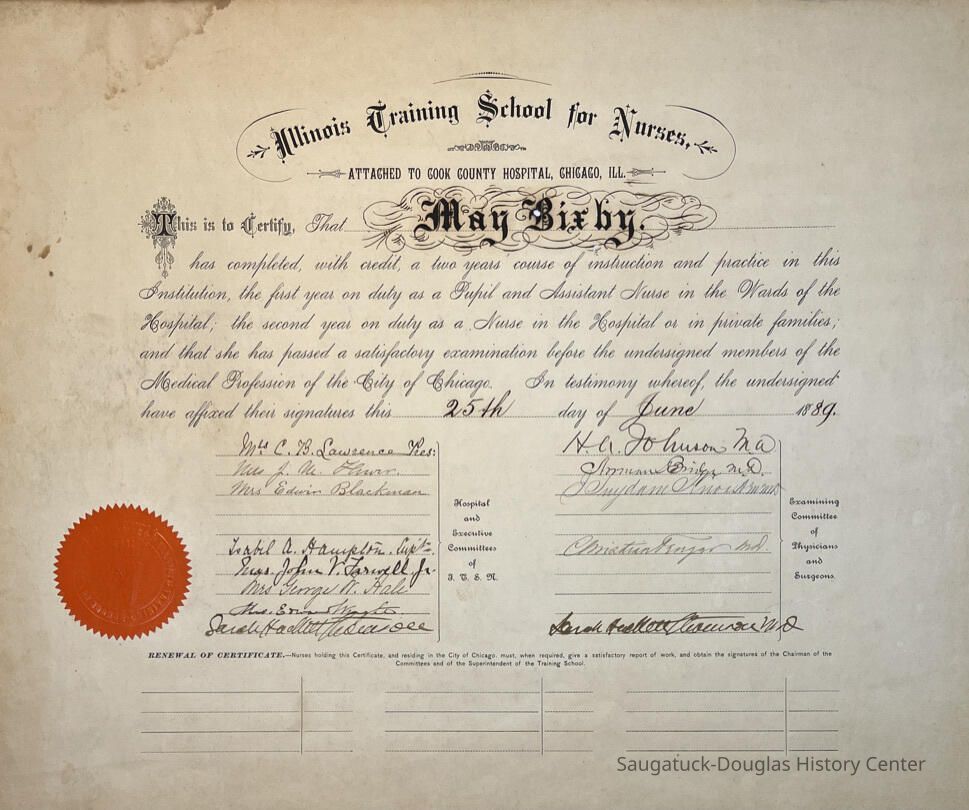 Illinois Training School for Nurses,
ATTACHED TO COOK COUNTY HOSPITAL, CHICAGO, ILL.
This is to Certify, That May Bixby.
has completed, with credit, a two years' course of instruction and practice in this
Institution, the first year on duty as a Pupil and Assistant Nurse in the Wards of the
Hospital; the second year on duty as a Nurse in the Hospital or in private families;
and that she has passed a satisfactory examination before the undersigned members of the
Medical Profession of the City of Chicago. In testimony whereof, the undersigned
have affixed their signatures this 25th day of June 1889.
Mrs C. B. Lawrence Pres:
Mrs J. M.
Mrs Edwin Blackman
Isabel A. Hampton. Supt
Mrs. John V. Farwell, Jr.
Mrs George W. Hale
Mrs.
Sarah Hackett Stevenson
Hospital
and
Executive
Committees
of
I. T. S. N.
H. A. Johnson M.D.
Norman Bridge M.D.
Christian Fenger M.D.
Sarah Hackett Stevenson M.D.
Examining
Committee
of
Physicians
and
Surgeons.
RENEWAL OF CERTIFICATE.—Nurses holding this Certificate, and residing in the City of Chicago, must, when required, give a satisfactory report of work, and obtain the signatures of the Chairman of the
Committees and of the Superintendent of the Training School.
Saugatuck-Douglas History Center